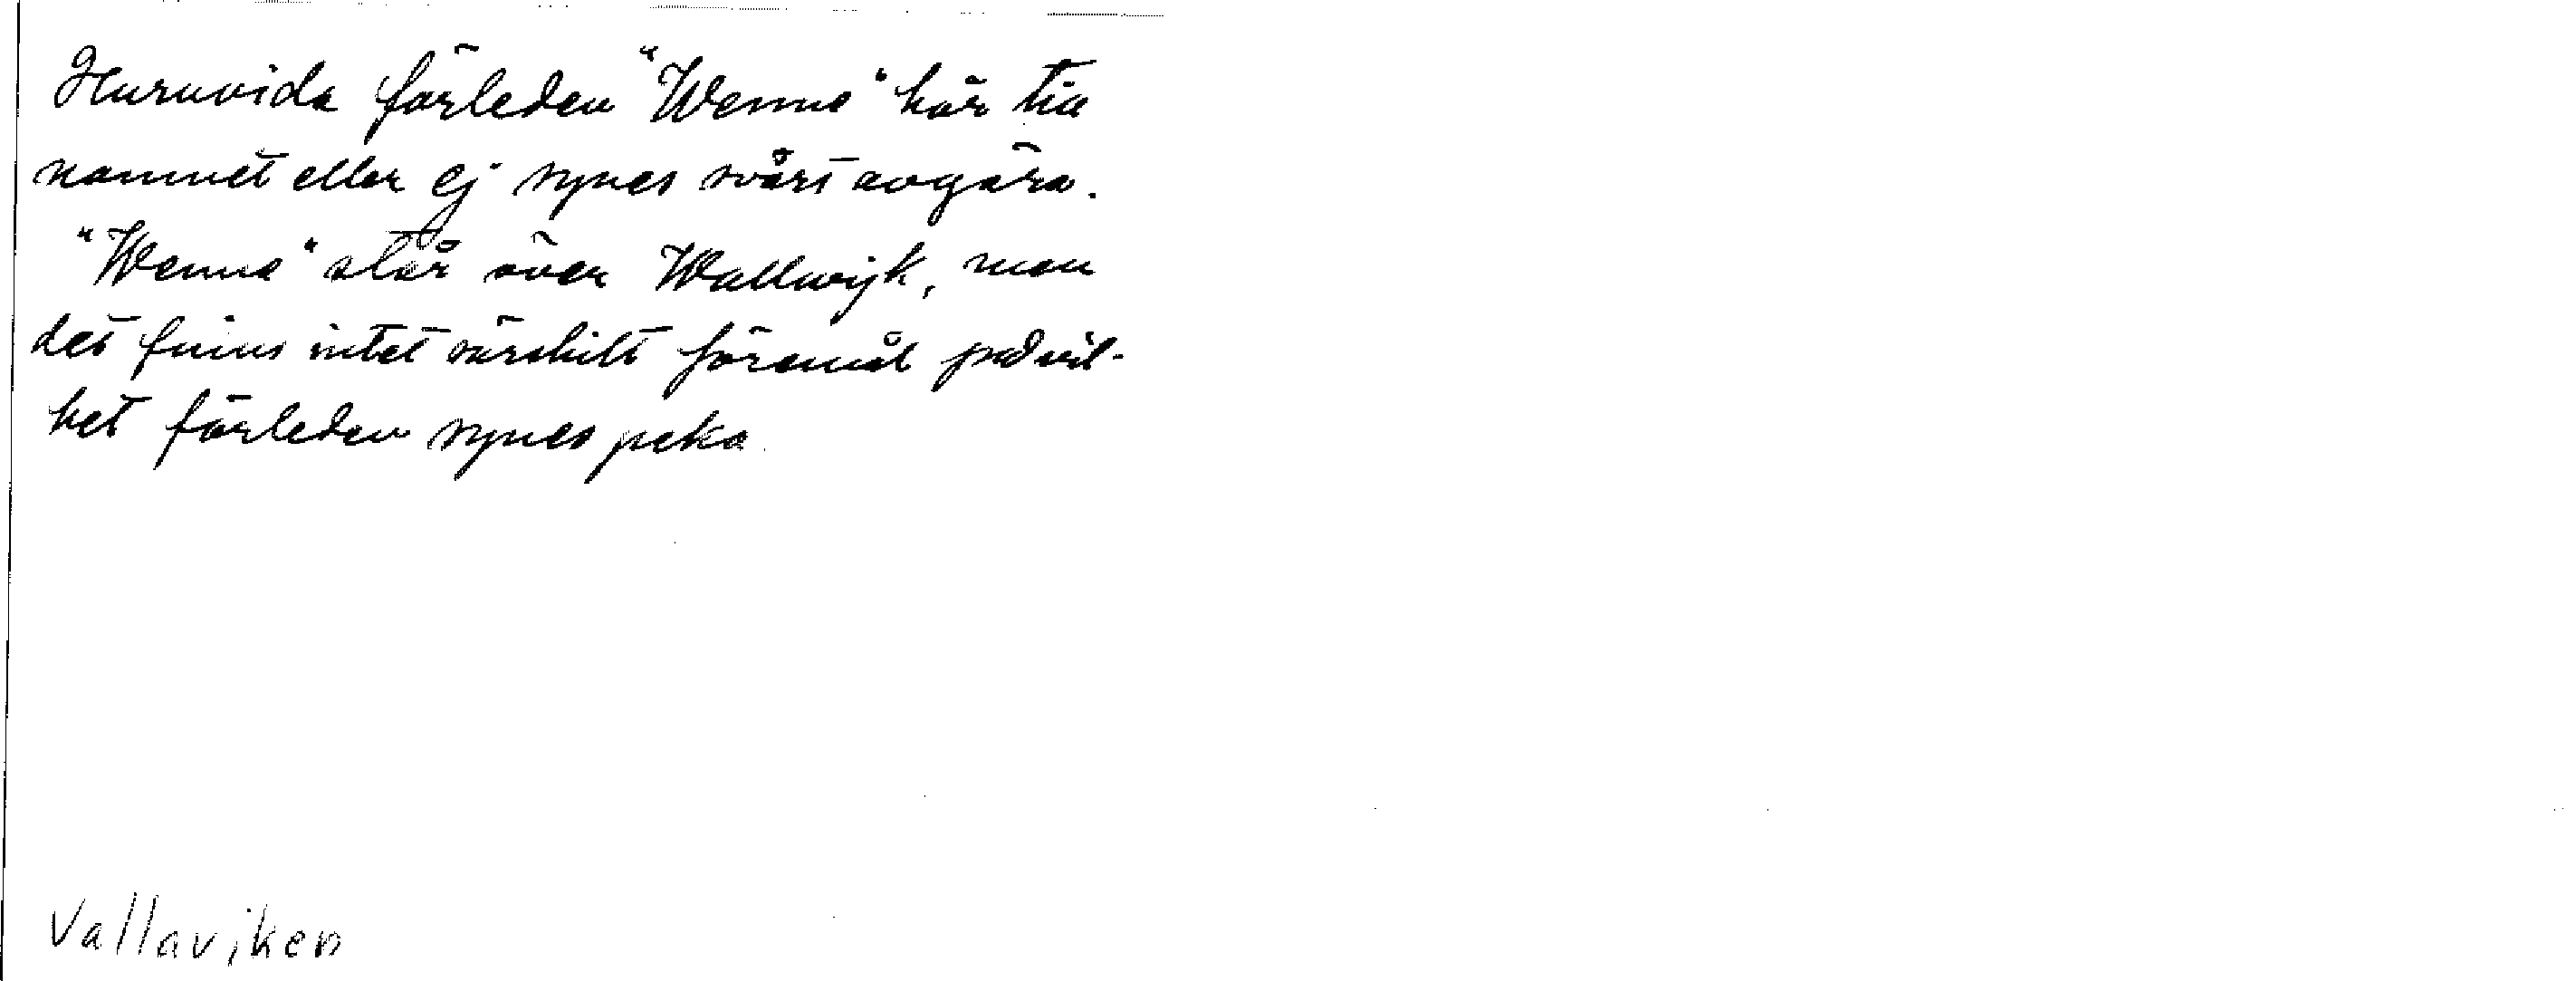 Huruvida förleden "Wenne" hör till
namnet eller ej synes svårt avgöra.
"Wenne" står över Wallwijk, men
det finns intet särskilt föremål på vil-
ket förleden synes peka.
Vallaviken